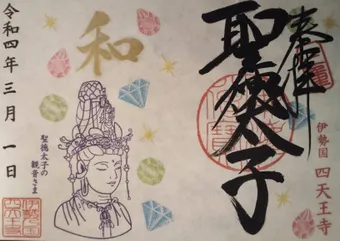 奉拝
聖徳太子
伊勢国
四天王寺
和
聖徳太子の
観音さま
令和四年三月一日